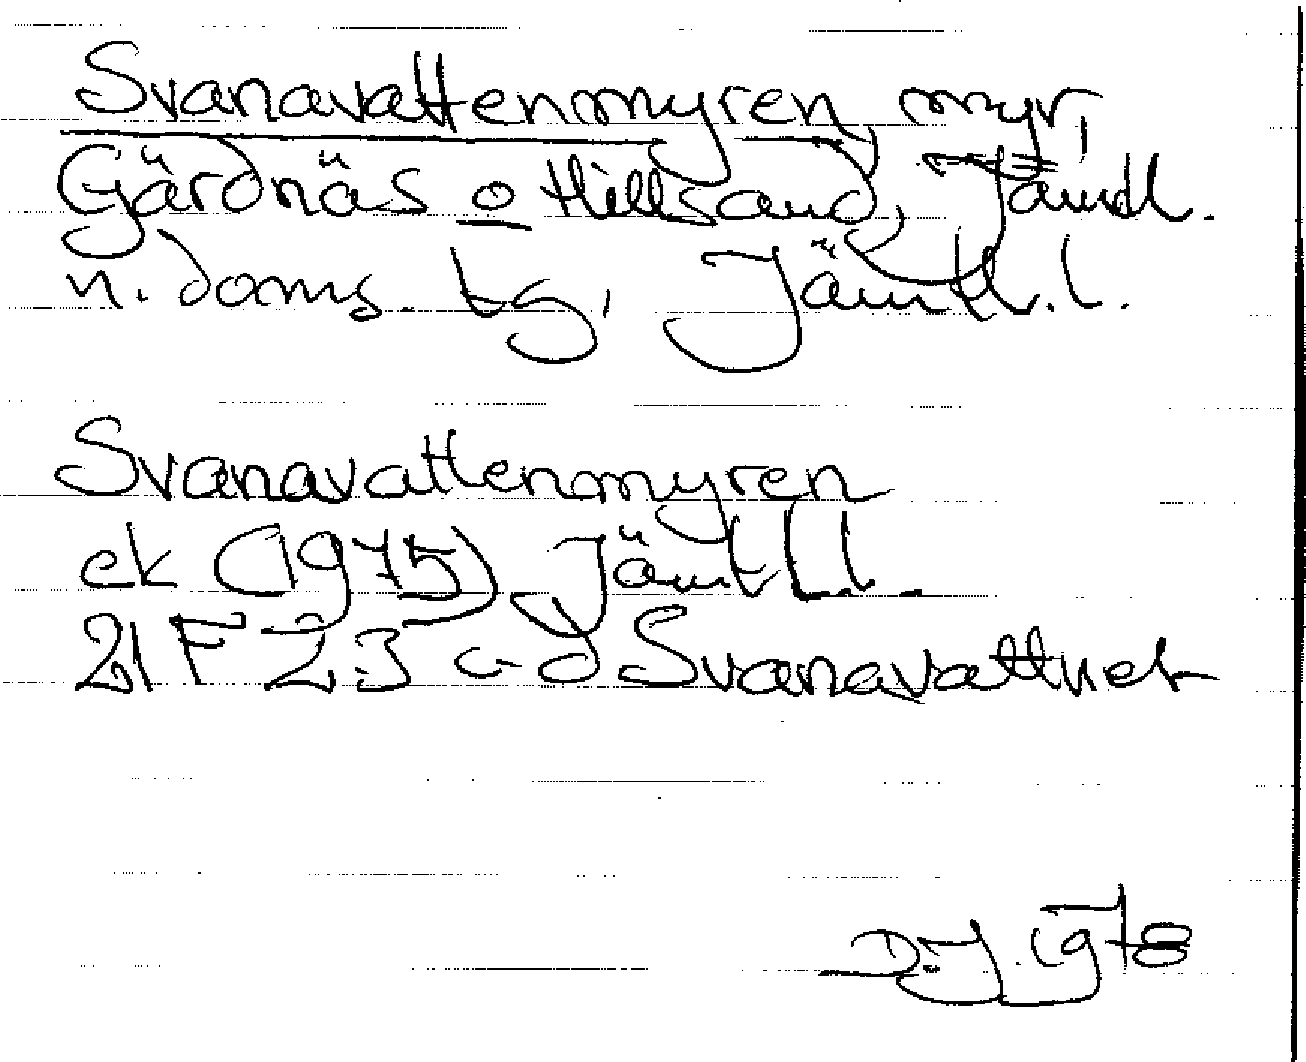 Svanavattenmyren, myr,
Gärdnäs o Hillsand, Jämtl.
n. doms. tg, Jämtl. l.
Svanavattenmyren
ek (1975) Jämtl.l.
21 F 2-3 c-d Svanavattnet
D.J. 1978